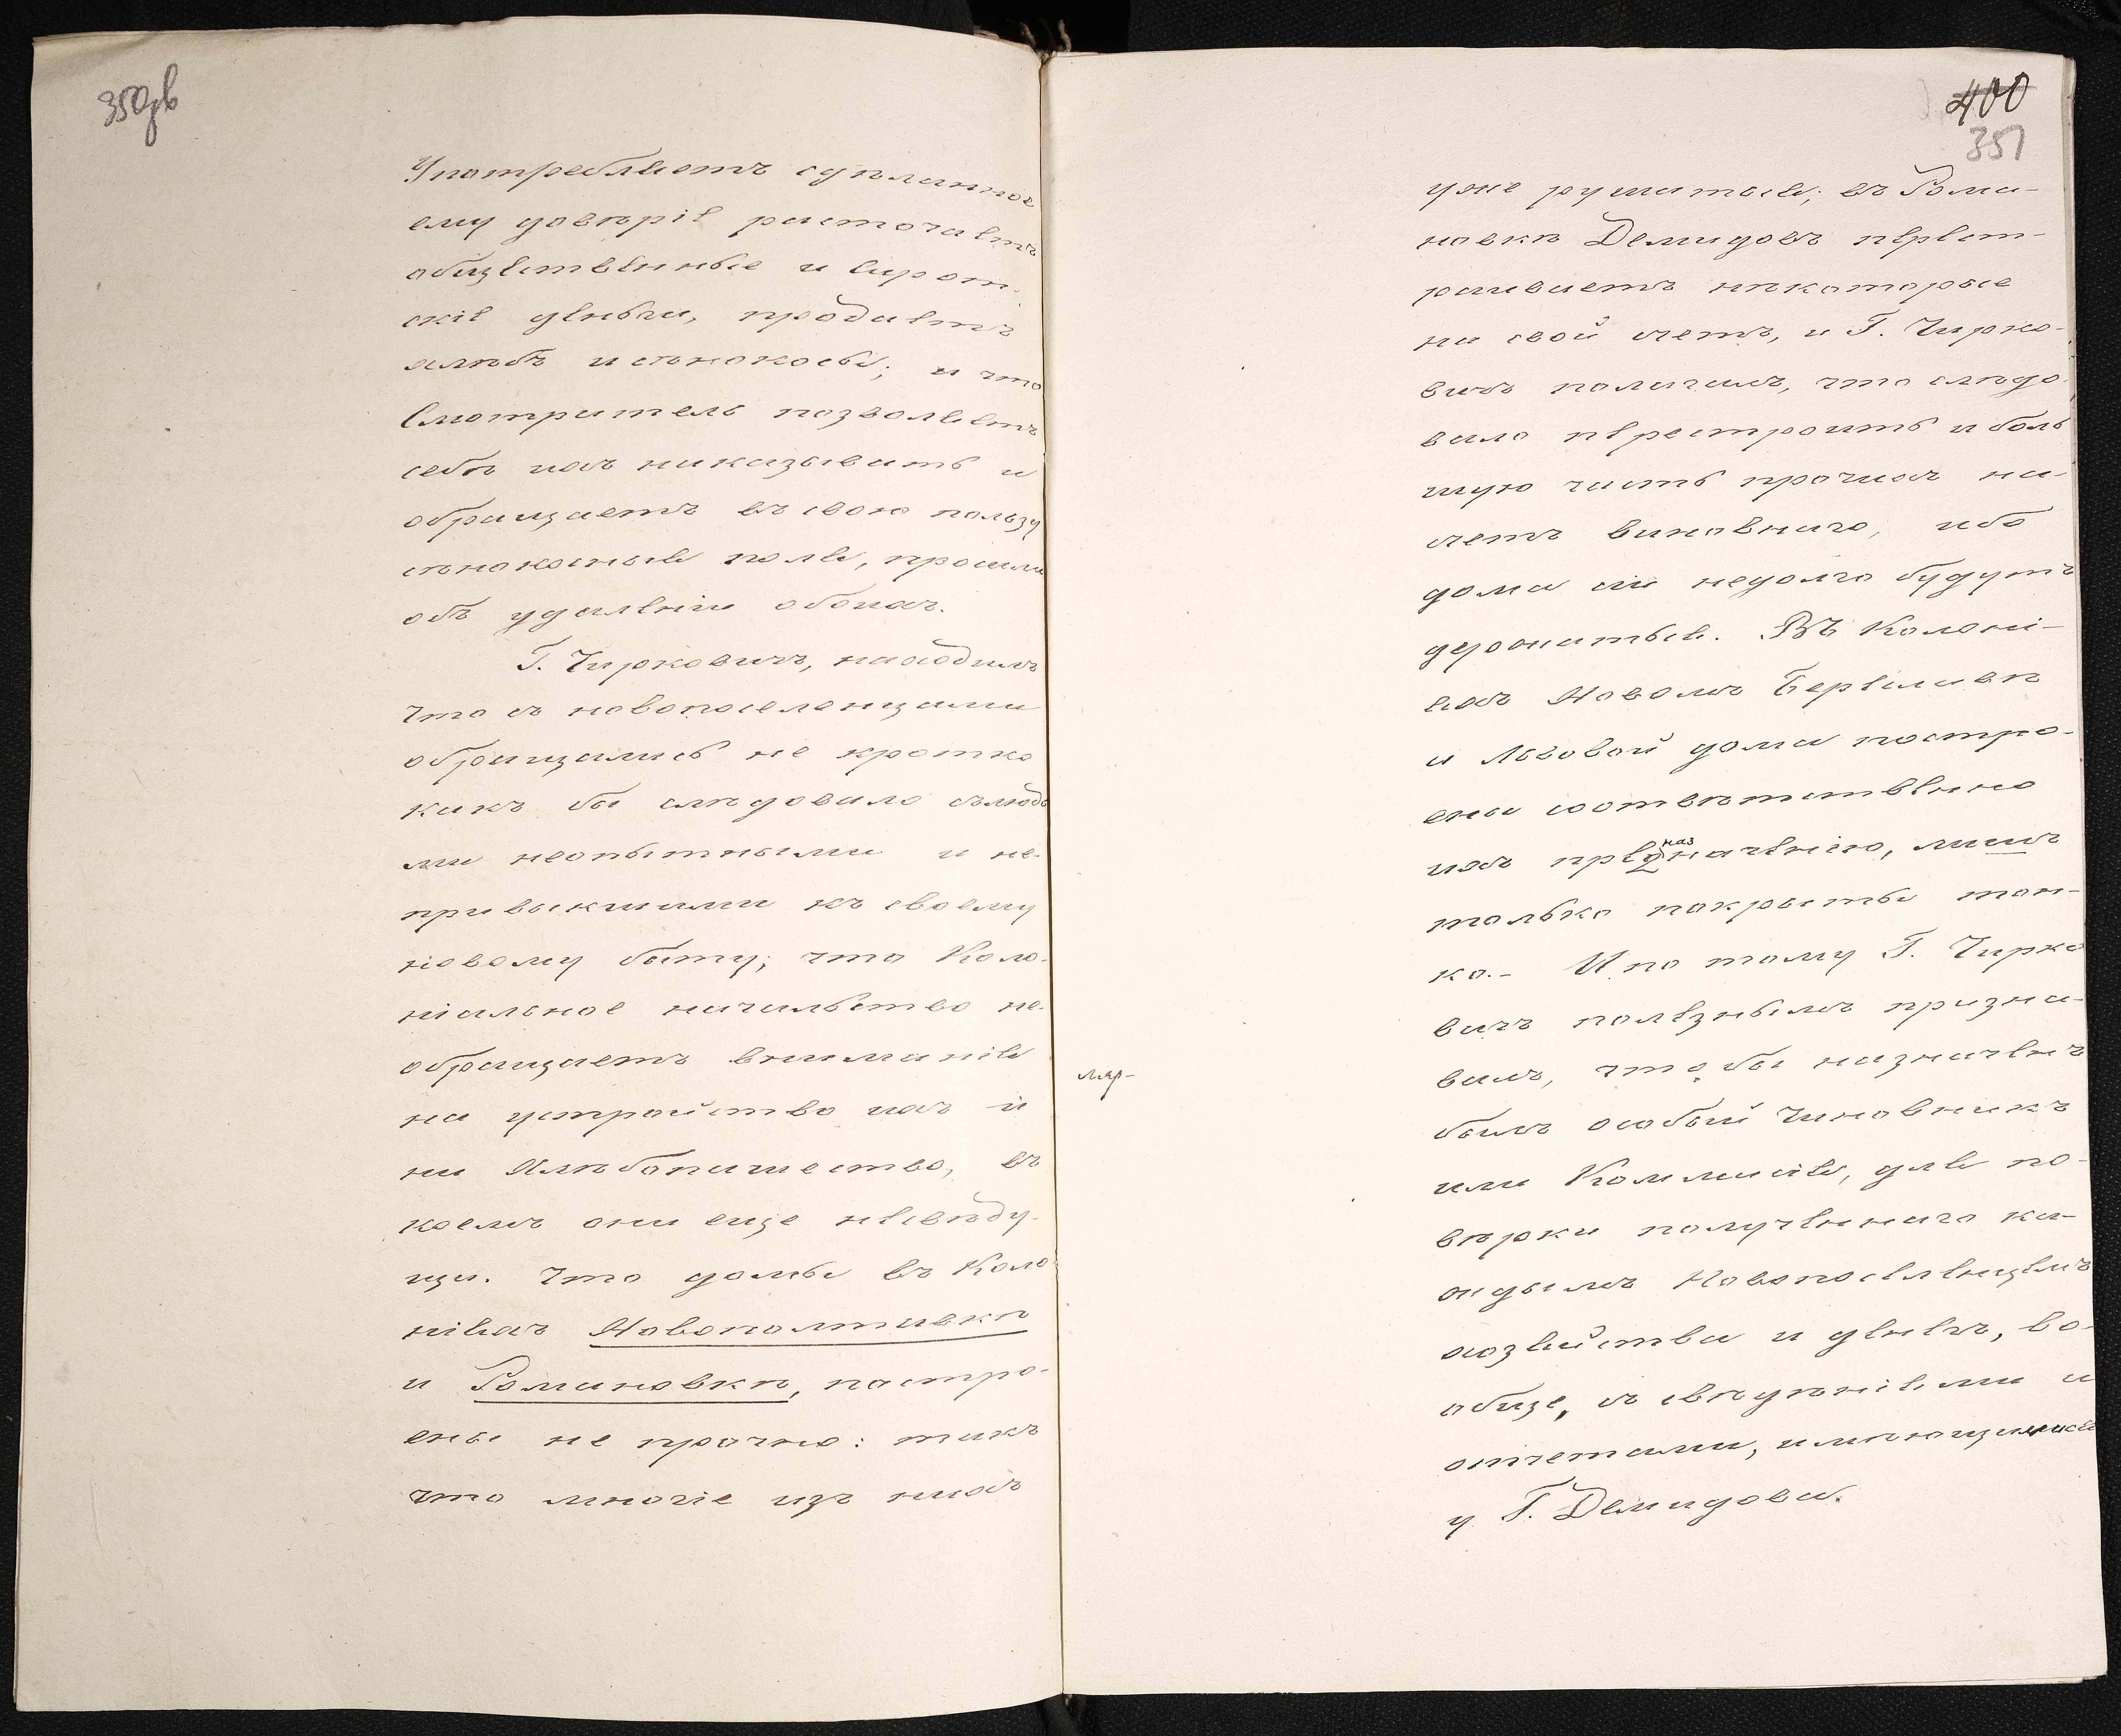 350 об
Употребляетъ сдѣланное
ему довѣріе расточаетъ
общественные и сирот-
скіе деньги, продаетъ
хлѣбъ и сѣнокосы; и что
Смотритель позволяетъ
себѣ ихъ наказывать и
обращаетъ въ свою пользу
сѣнокосныя поля, просили
объ удаленіи обоихъ.
Г. Чирковичъ, находилъ
что съ новопоселенцами
обращались не кротко
какъ бы слѣдовало съ людь
ми неопытными и не-
привыкшими къ своему
новому быту; что Коло-
ніальное начальство не-
обращаетъ вниманія
на устройство ихъ и
на Хлѣбопашество, въ
коемъ они еще несвѣду-
щи. Что домы въ Коло-
ніяхъ Новополтавкѣ
и Романовкѣ, постро-
ены не прочно: такъ
что многіе изъ нихъ
400
351
уже рушатся; въ Рома-
новкѣ Демидовъ перест-
раиваетъ нѣкоторые
на свой счетъ, и Г. Чирко-
вичъ полагалъ, что слѣдо-
вало перестроить и боль
шую часть прочихъ на-
счетъ виновнаго, ибо
дома сіи недолго будутъ
держаться. Въ Колоні-
яхъ Новомъ Бериславѣ
и Львовой дома постро-
ены соотвѣтственно
ихъ предназначенію, лишъ
только покрыты тон-
ко. – И по тому Г. Чирко
вичъ полезнымъ призна-
валъ, что бы назначенъ
былъ особый Чиновникъ
или Коммисія, для по-
вѣрки полученнаго ка-
ждымъ Новопоселенцемъ
хозяйства и денегъ, во-
обще, съ свѣдѣніями и
отчетами, имѣющимися
у Г. Демидова.